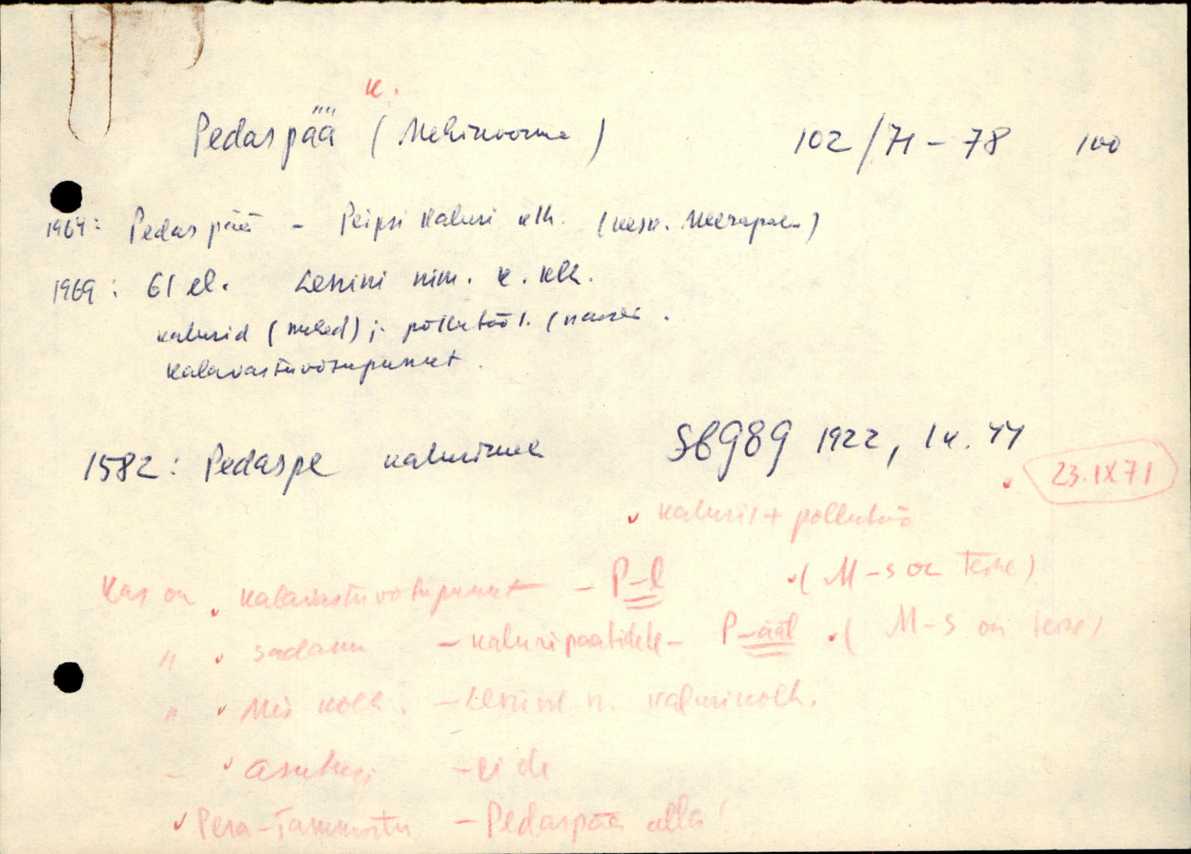 k.
Pedaspää (Mehikoorma) 102/71-78 100
1964: Pedaspää - Peipsi Kaluri klh. (kesk. Meerapalu)
1969: 61 el. Lenini nim. k. klh.
kalurid (mehed) j. põllutööl. (naised.
kalavastuvõtupunkt.
1582: Pedaspe kaluriküla SbGEG 1922, lk. 44
23.IX 71
kalurit + põllutöö
Kas on kalavastuvõtupunkt - P-l (M-s on teine)
" sadam - kaluripaatidele - P-ääl (M-s on teine)
" Mis kolh. - Lenini n. kalurikolh.
- asutusi - ei ole
Pera-Tammistu - Pedaspää alla!